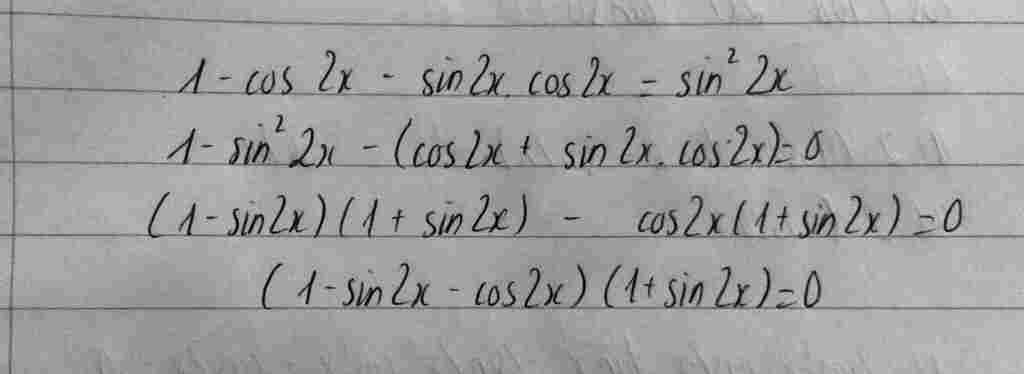 1 - cos 2x - sin2x. cos2x = sin² 2x
1 - sin² 2x - (cos2x + sin2x. cos2x)= 0
(1 - sin2x)(1 + sin2x) - cos2x(1+sin2x) = 0
(1 - sin2x - cos2x)(1+ sin2x)=0